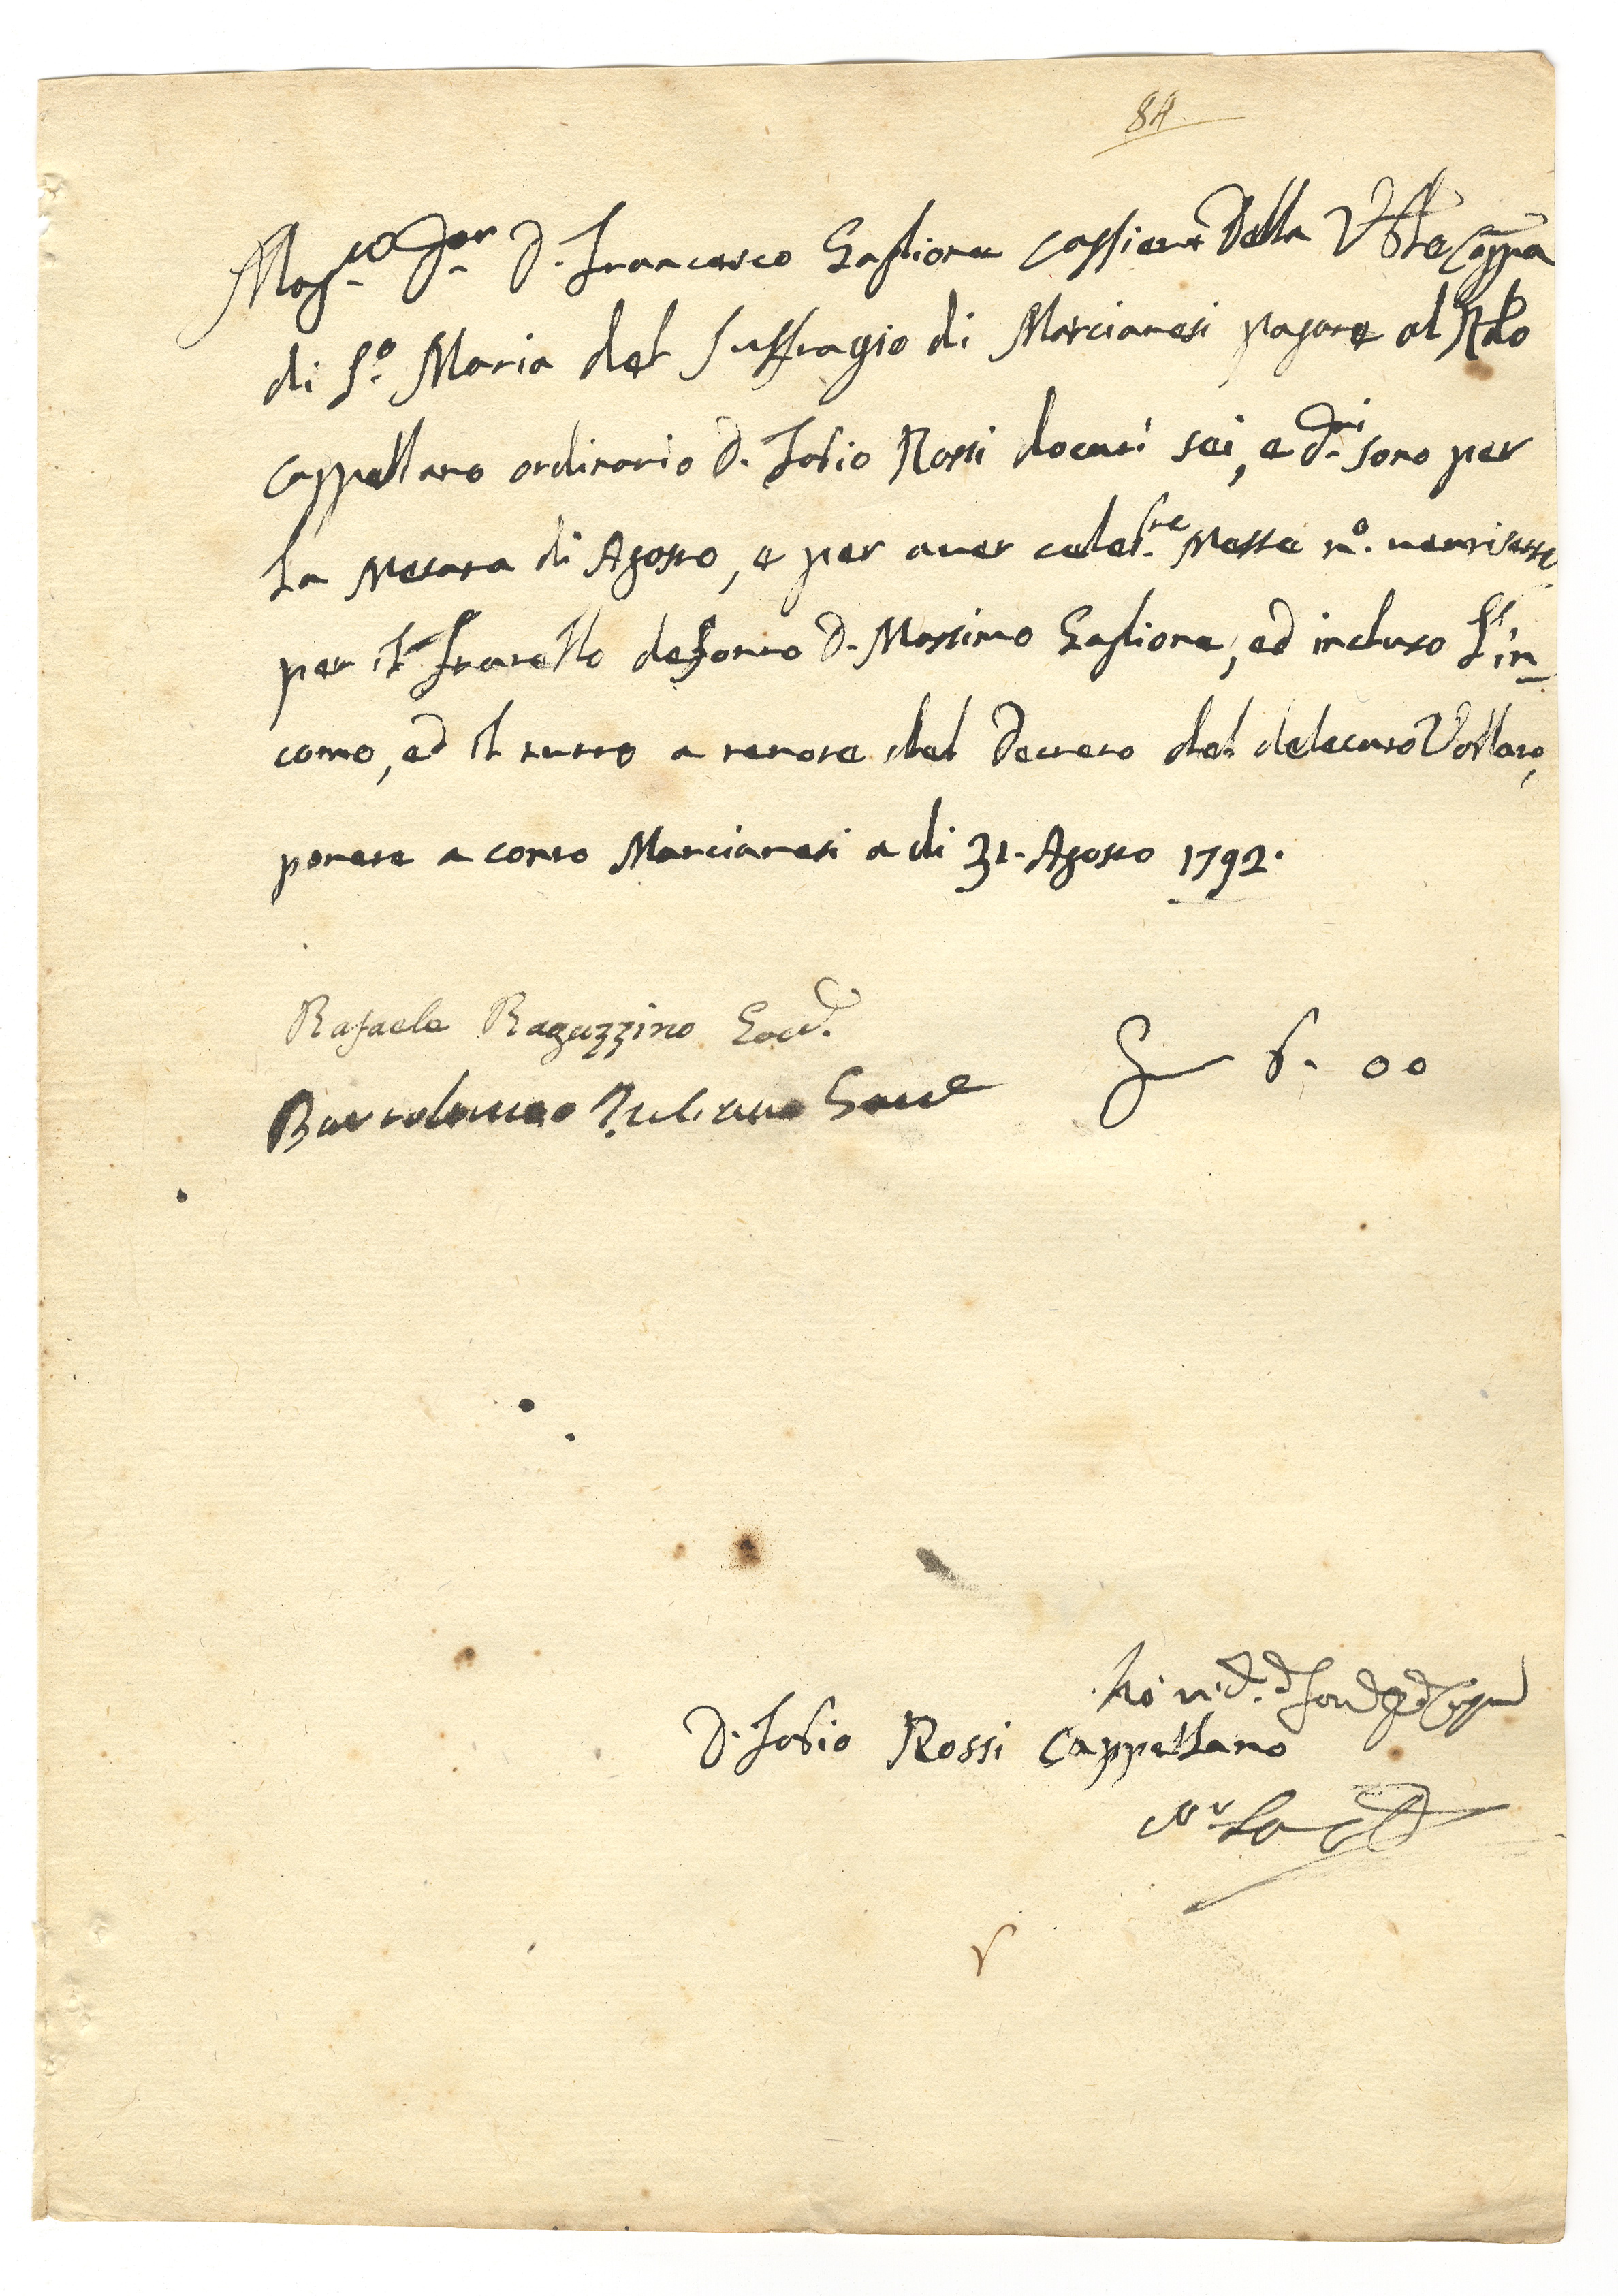 84
Mag.co Sig.r D. Francesco Gaglione Cassiere Della V.ble Cappa
di S.a Maria del Suffragio di Marcianesi pagare al Rdo
Cappellano ordinario D. Fabio Rossi docati sei, e d.ti sono per
la Mesata di Agosto, e per aver celeb.te Messe n.o ventisette
per il Fratello defonto D. Massimo Gaglione, ed incluso l'in
como, ed il tutto a tenore del Decreto del delecato Vollaro,
ponete a conto Marcianesi a di 31. Agosto 1792.
Rafaele Raguzzino Gov.e
Bartolomeo Iuliano Gov.e
6. 00
D. Fabio Rossi Cappellano